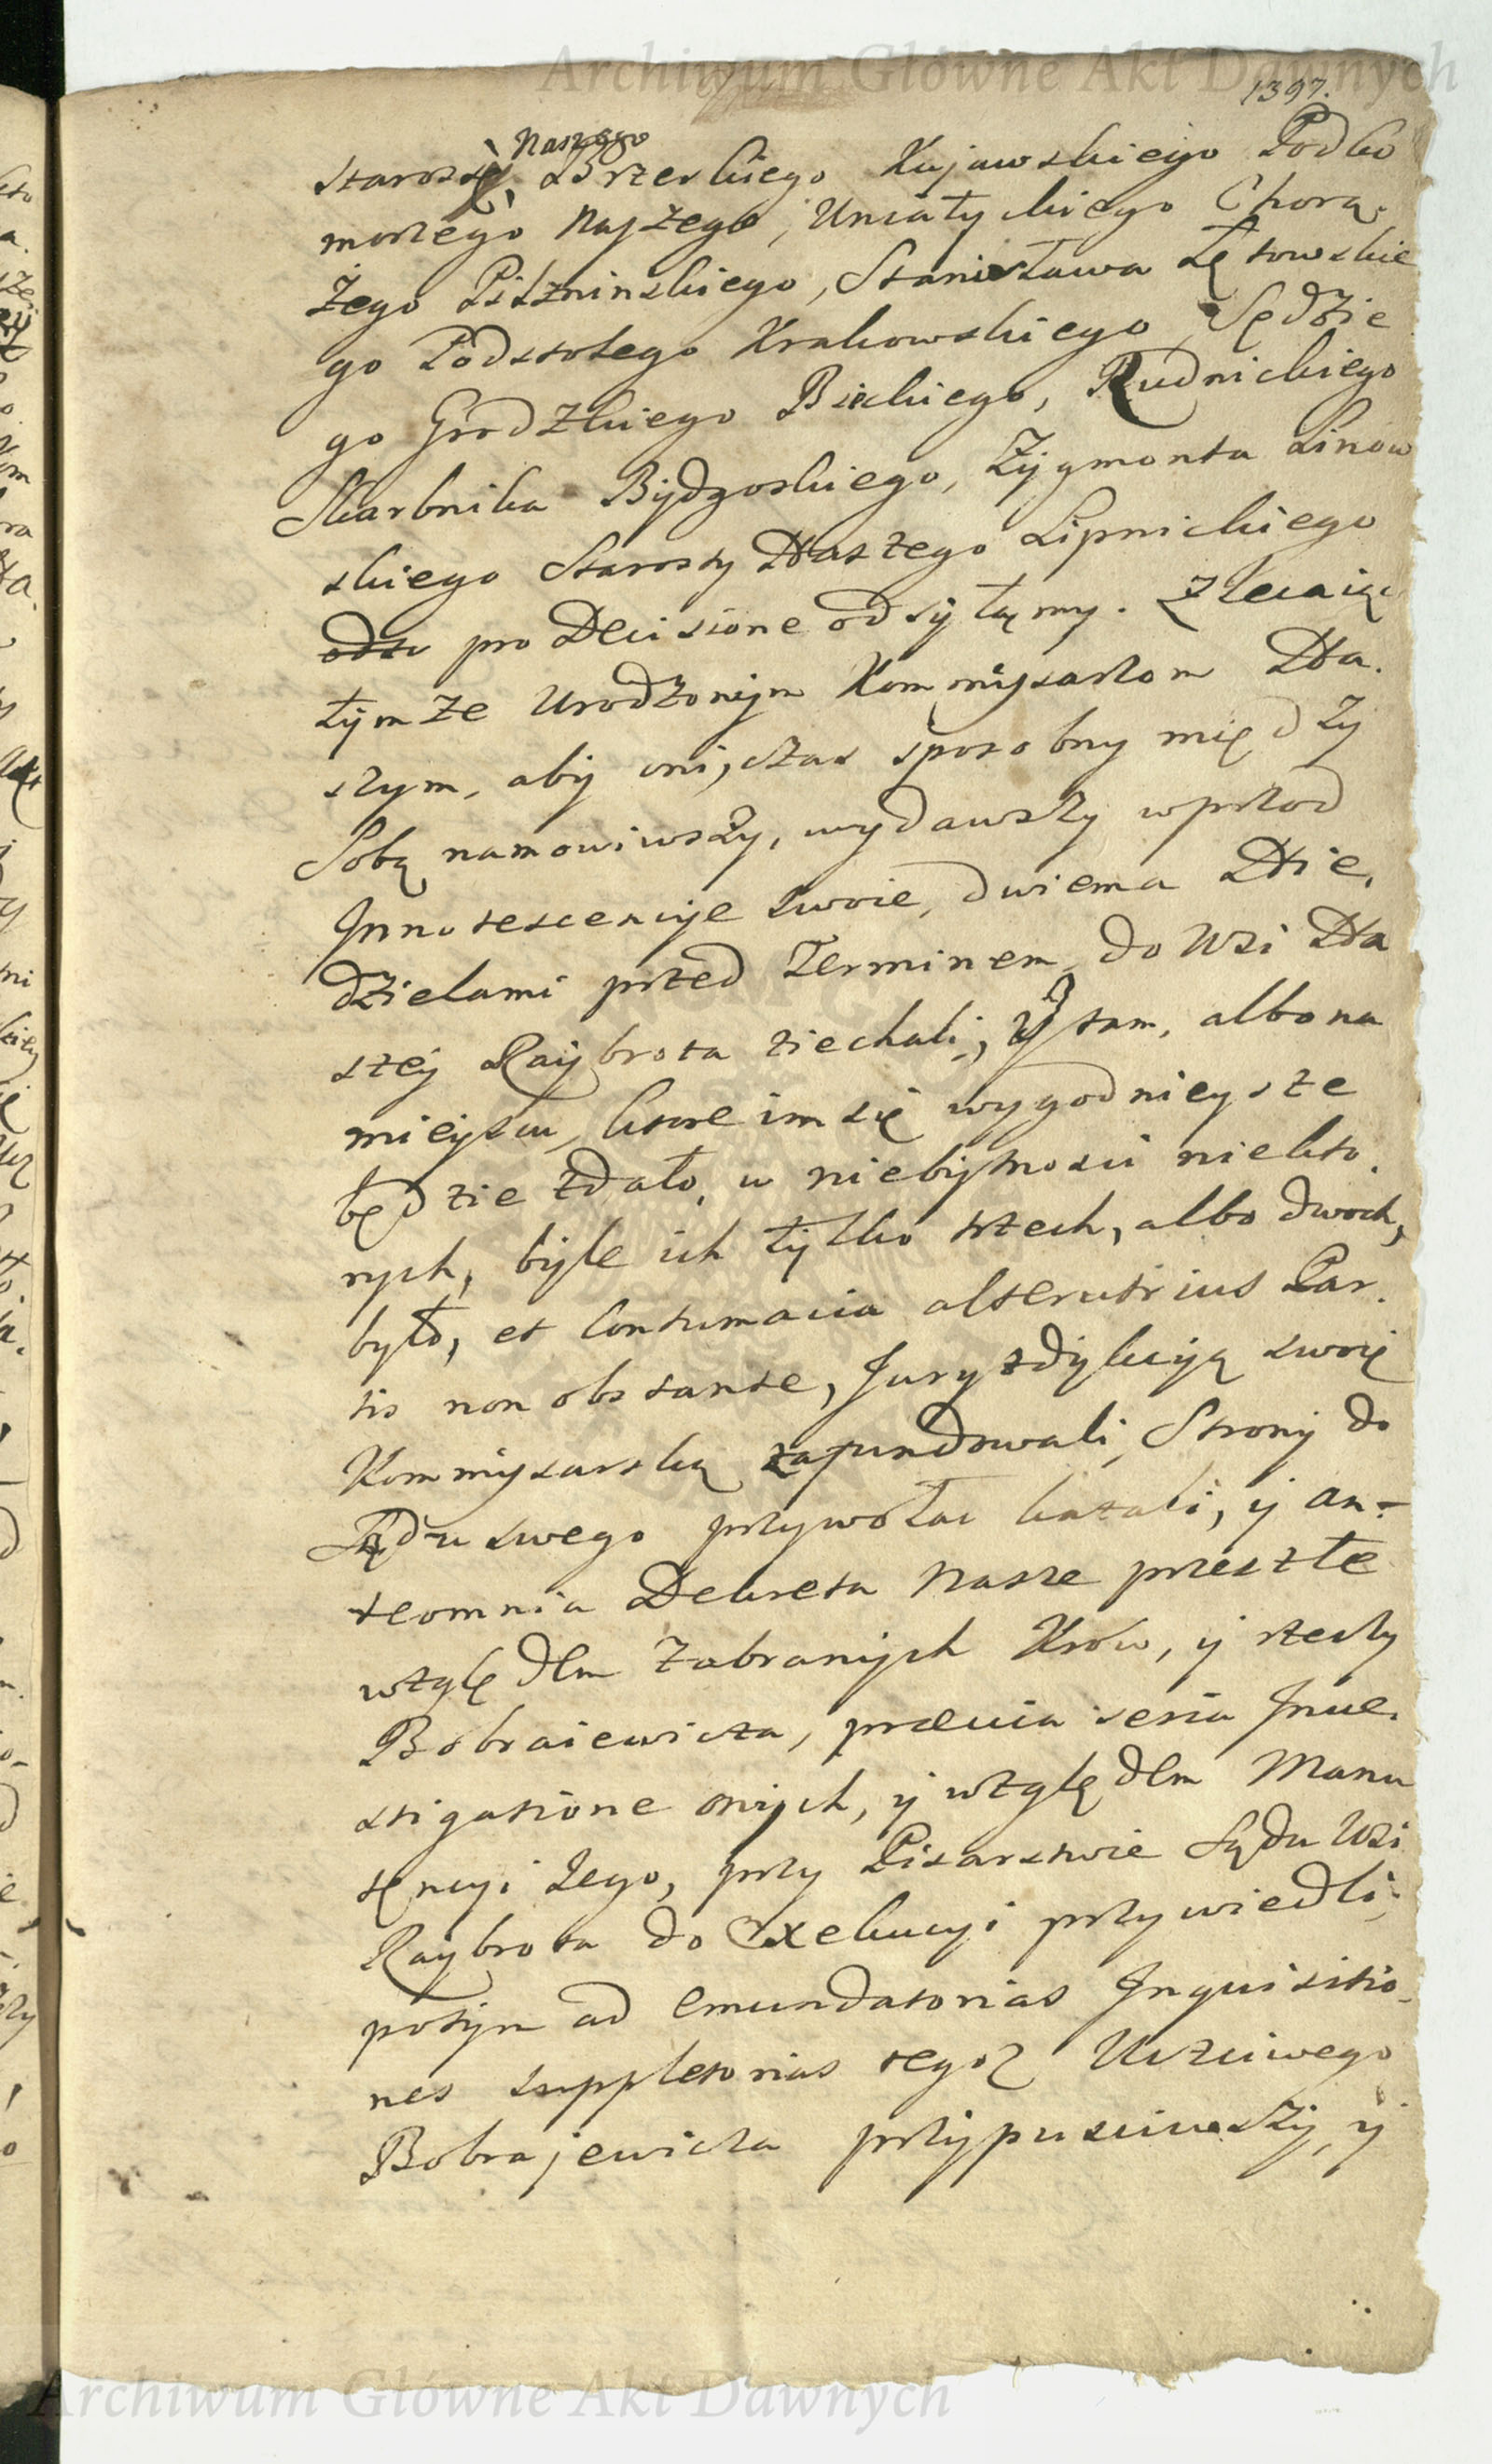 Archiwum Główne Akt Dawnych
1397.
Naszego
Starostę, Brzeskiego Kujawskiego Podko
morzego Naszego, Uniatyckiego Chorą.
żego Pilzninskiego, Stanisława Łętowskie
go Podstolego Krakowskiego, Sędzie
go Grodzkiego Bieckiego, Rudnickiego
Skarbnika Bydgoskiego, Zygmonta Linow
skiego Starosty Naszego Lipnickiego
pro Decisione odsyłamy. Zlecaiąc
tymże Urodzonym Kommisarzom Na.
szym, aby oni, czas sposobny między
Sobą namowiwszy, wydawszy wprzod
Innotescencyje swoie, dwiema Nie.
dzielami przed Terminem, do Wsi Na
szey Raybrota ziechali, y tam, albo na
mieyscu, ktore im się wygodnieysze
będzie zdało, w niebytnosci niekto.
rych, byle ich tylko trzech, albo dwoch,
było, et Contumacia alterutrius Par.
tis non obstante, Juryzdykcyją swoię
Kommisarską zafundowali, Strony do
Sądu swego przywołac kazali, y an-
teomnia Dekreta Nasze przeszłe
względem zabranych Krow, y rzeczy
Bobraiewicza, prævia seria Inve.
stigatione onych, y względem Manu
tencyi Jego, przy Pisarstwie Sądu Wsi
Raybrota do Exekucyi przywiedli,
potym ad emundatorias Inquisitio-
nes suppletorias tegoz Uczciwego
Bobrajewicza przypusciwszy, y
Archiwum Główne Akt Dawnych